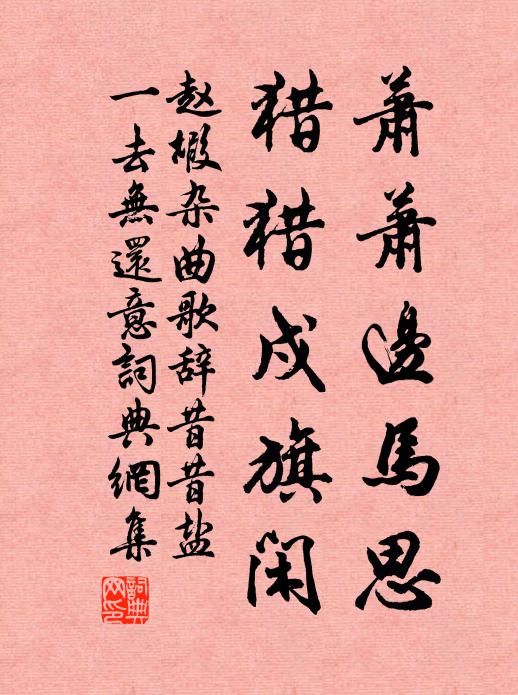 蕭蕭邊馬思
猎猎戍旗闲
赵嘏杂曲歌辞昔昔盐
一去無還意詞典網集
詞典網印